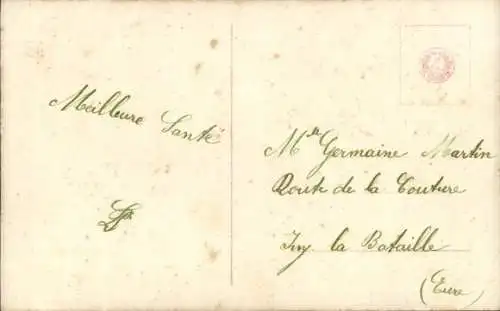 Meilleure Santé
Mlle Germaine Martin
Route de la Couture
Ivry la Bataille
(Eure)